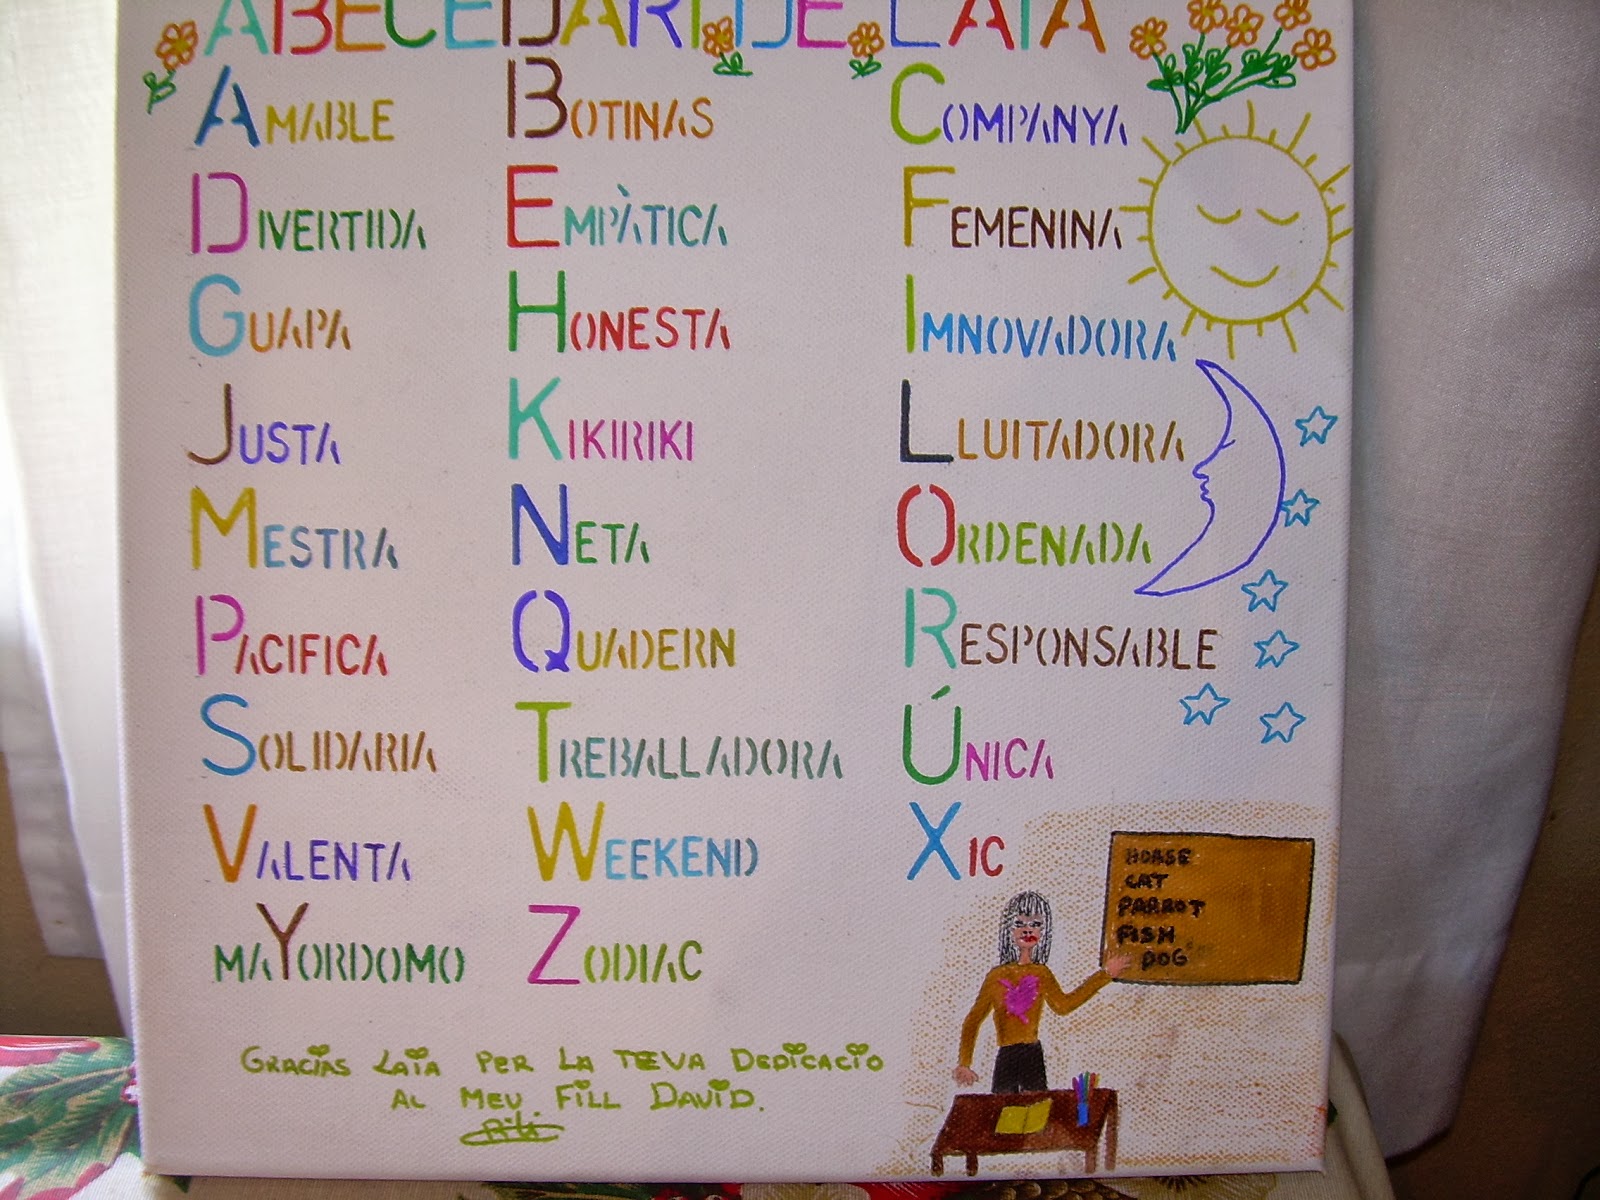 ABECEDARI DE LAIA
AMABLE BOTINAS COMPANYA
DIVERTIDA EMPÀTICA FEMENINA
GUAPA HONESTA IMNOVADORA
JUSTA KIKIRIKI LLUITADORA
MESTRA NETA ORDENADA
PACIFICA QUADERN RESPONSABLE
SOLIDARIA TREBALLADORA ÚNICA
VALENTA WEEKEND XIC
MAYORDOMO ZODIAC
HORSE
CAT
PARROT
FISH
DOG
GRACIAS LAIA PER LA TEVA DEDICACIO
AL MEU FILL DAVID.